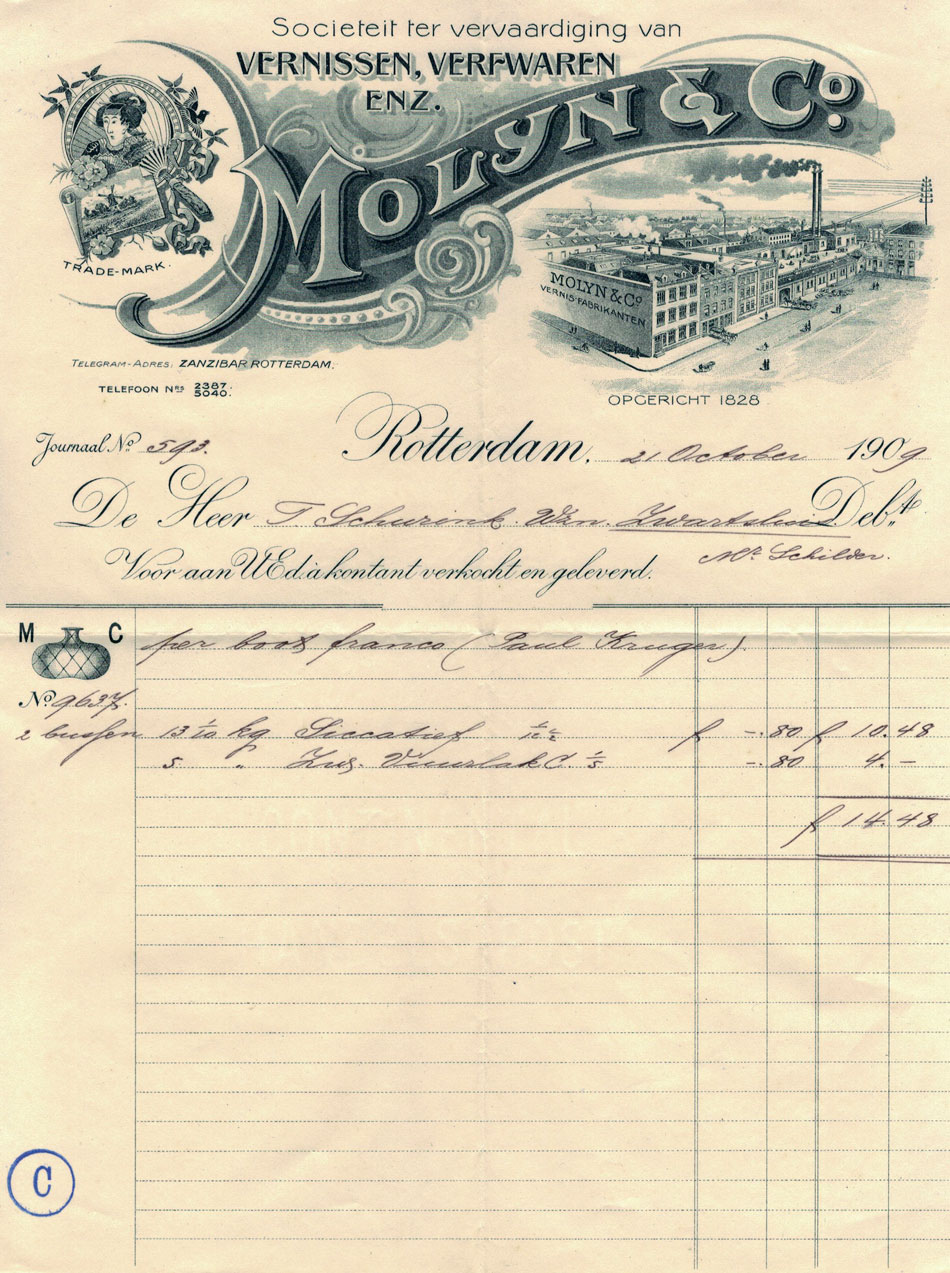 Societeit ter vervaardiging van
VERNISSEN, VERFWAREN
ENZ.
MOLYN & Co.
TRADE-MARK.
MOLYN & Co
VERNIS-FABRIKANTEN
TELEGRAM-ADRES: ZANZIBAR ROTTERDAM.
TELEFOON Nrs 2387. 5040.
OPGERICHT 1828
Journaal No. 593. Rotterdam, 21 October 1909
De Heer T. Schurink Wzn. Zwartsluis Debt.
Mr. Schilder.
Voor aan UEd. à kontant verkocht en geleverd.
M C
per boot franco (Paul Kruger).
No. 9637.
2 bussen 13 1/10 kg Siccatief f -.80 f 10.48
5 " Zw. Vuurlak C. 1/5 -.80 4.-
f 14.48
C